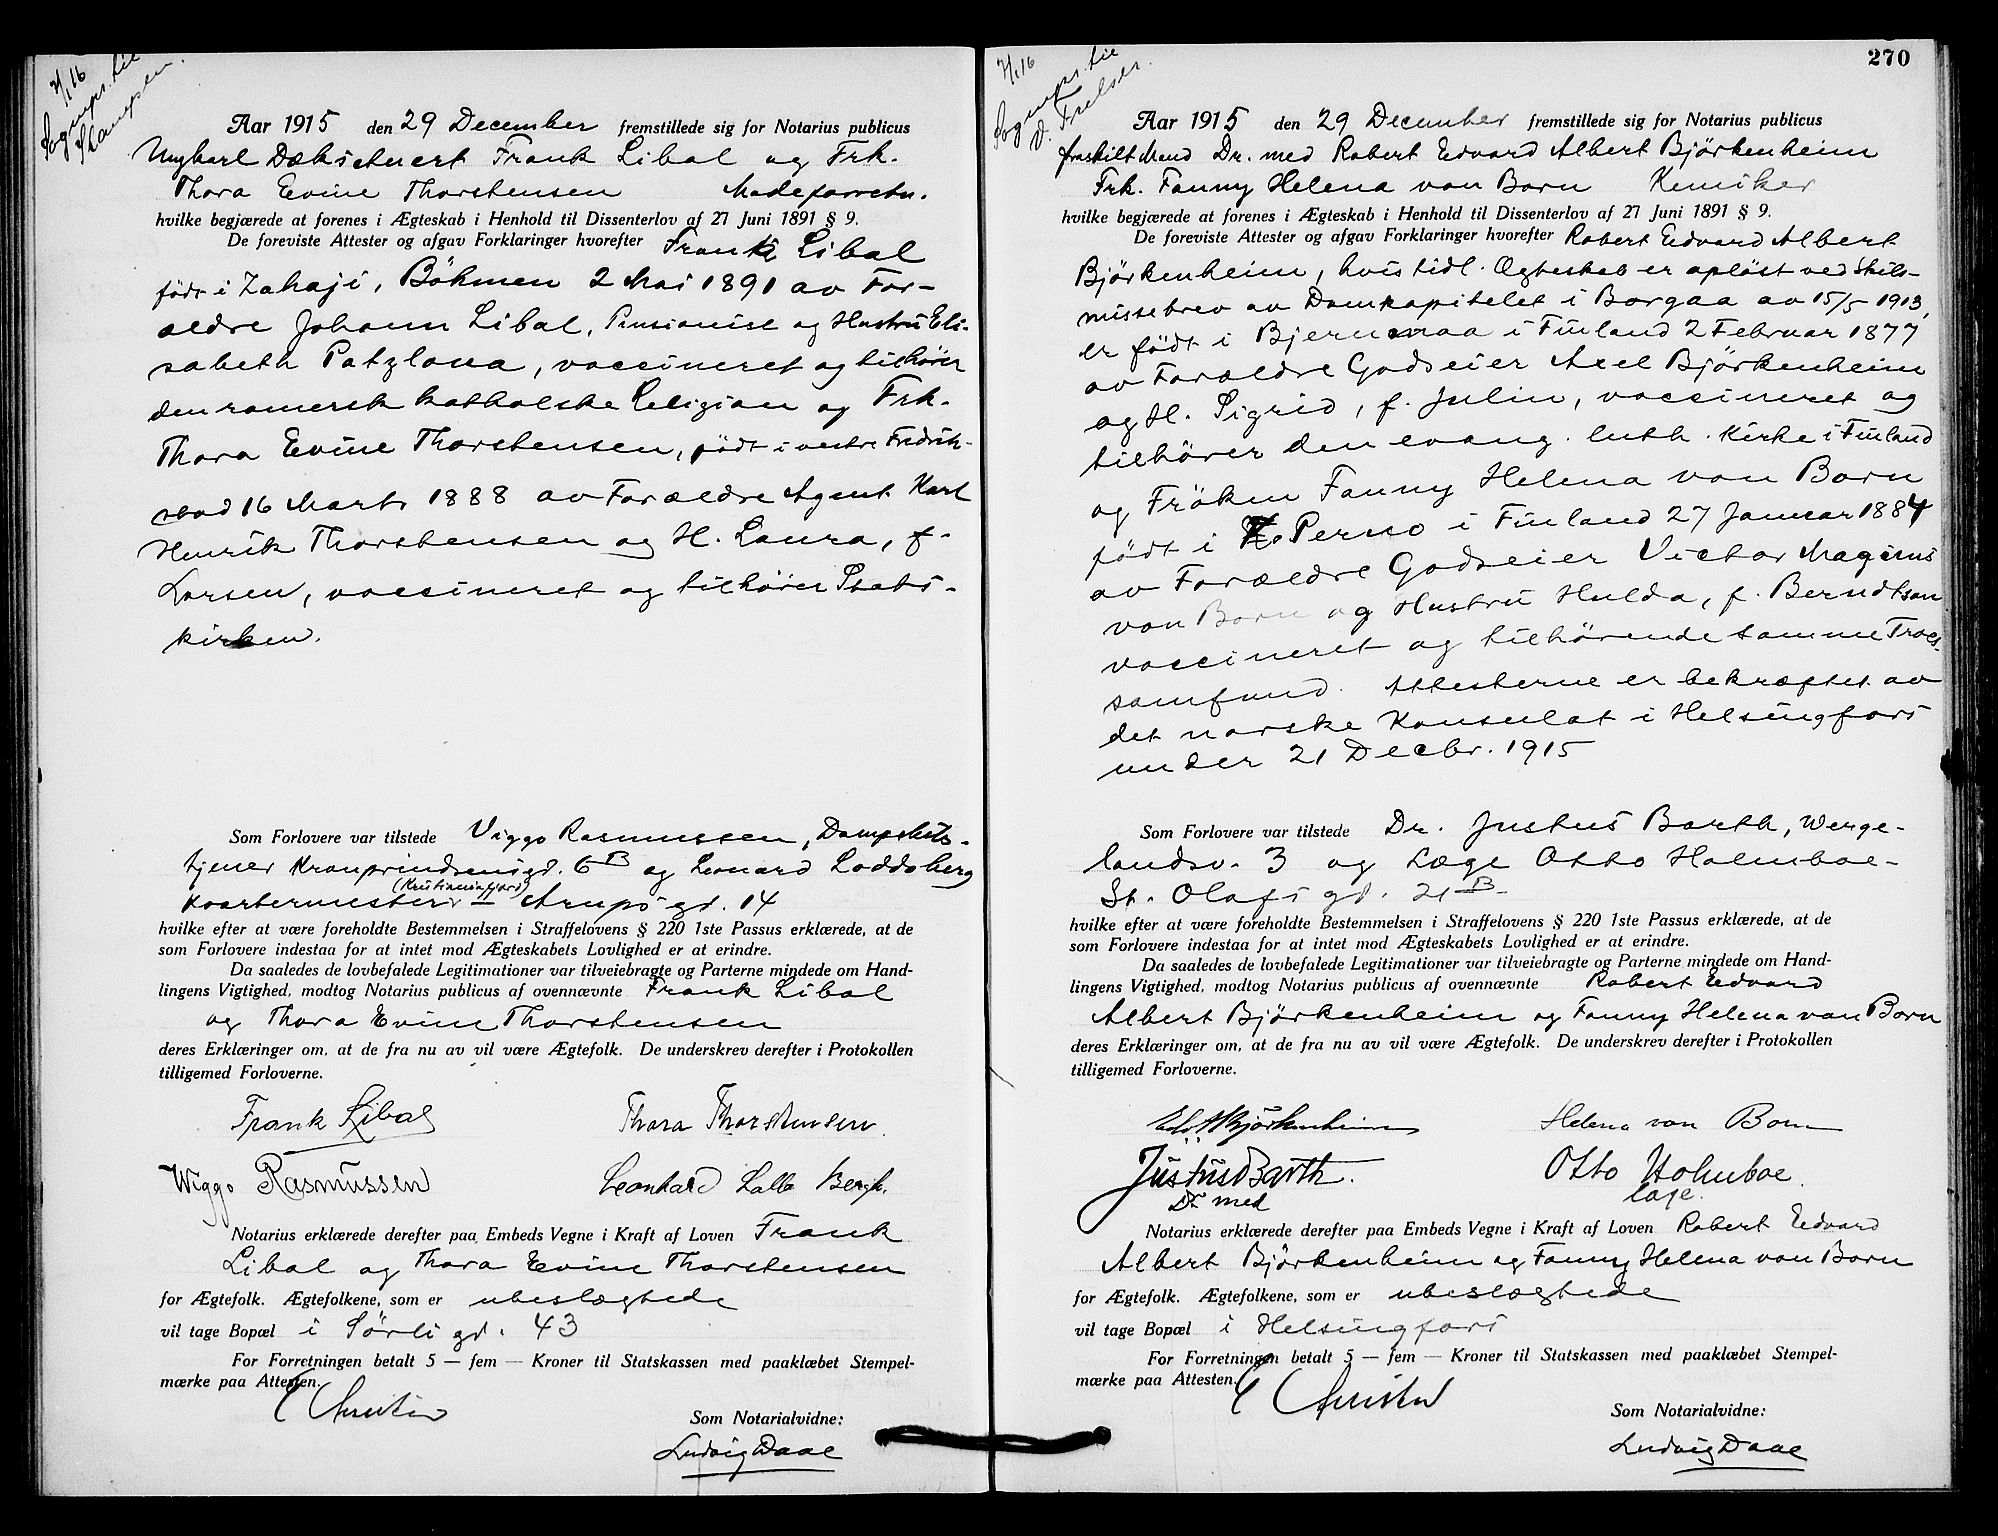 7/1 16
Sogneprs. til
Aar 1915 den 29 December fremstillede sig for Notarius publicus
Ungkarl Frank Libal og Frk.
Thora Evine Thorstensen
hvilke begjærede at forenes i Ægteskab i Henhold til Dissenterlov af 27 Juni 1891 § 9.
De foreviste Attester og afgav Forklaringer hvorefter Frank Libal
født i Zahaji, Böhmen 2 Mai 1891 av For-
ældre Johann Libal, Pensionist og Hustru Eli-
sabeth Patzlova, vaccineret og tilhører
den romersk katholske Religion og Frk.
Thora Evine Thorstensen, født i vestre Fredrik-
stad 16 Marts 1888 av Forældre Agent Karl
Henrik Thorstensen og H. Laura, f.
Larsen, vaccineret og tilhører Stats-
kirken.
Som Forlovere var tilstede Viggo Rasmussen, Dampskibs-
tjener Kronprindsensgd. 6 B og Leonard Loddoberg
Kvartermester (Kristianiafjord) Arupsgd. 14
hvilke efter at være foreholdte Bestemmelsen i Straffelovens § 220 1ste Passus erklærede, at de
som Forlovere indestaa for at intet mod Ægteskabets Lovlighed er at erindre.
Da saaledes de lovbefalede Legitimationer var tilveiebragte og Parterne mindede om Hand-
lingens Vigtighed, modtog Notarius publicus af ovennævnte Frank Libal
og Thora Evine Thorstensen
deres Erklæringer om, at de fra nu av vil være Ægtefolk. De underskrev derefter i Protokollen
tilligemed Forloverne.
Frank Libal Thora Thorstensen
Wiggo Rasmussen Leonhard
Notarius erklærede derefter paa Embeds Vegne i Kraft af Loven Frank
Libal og Thora Evine Thorstensen
for Ægtefolk. Ægtefolkene, som er ubeslægtede
vil tage Bopæl i Sörligd. 43
For Forretningen betalt 5 — fem — Kroner til Statskassen med paaklæbet Stempel-
mærke paa Attesten.
Som Notarialvidne:
Ludvig Daae
270
7/1 16
Sogneprs. til
v. Frelser.
Aar 1915 den 29 December fremstillede sig for Notarius publicus
fraskilt Mand Dr. med Robert Edvard Albert Björkenheim
Frk. Fanny Helena von Born Kemiker
hvilke begjærede at forenes i Ægteskab i Henhold til Dissenterlov af 27 Juni 1891 § 9.
De foreviste Attester og afgav Forklaringer hvorefter Robert Edvard Albert
Björkenheim, hvis tidl. Ægteskab er opløst ved Skils-
missebrev av Domkapitelet i Borgaa av 15/5 1913,
er født i Bjernonaa i Finland 2 Februar 1877
av Forældre Godseier Axel Björkenheim
og H. Sigrid, f. Julin, vaccineret og
tilhører den evang. luth. Kirke i Finland
og Frøken Fanny Helena von Born
født i Perno i Finland 27 Januar 1884
av Forældre Godseier Victor Magnus
von Born og Hustru Hulda, f. Berndtson
vaccineret og tilhørende samme Troes-
samfund. Attesterne er bekræftet av
det norske Konsulat i Helsingfors
under 21 Decbr. 1915
Som Forlovere var tilstede Dr. Justus Barth, Werge-
landsv. 3 og Læge Otto Holmboe-
St. Olafsgd. 21 B-
hvilke efter at være foreholdte Bestemmelsen i Straffelovens § 220 1ste Passus erklærede, at de
som Forlovere indestaa for at intet mod Ægteskabets Lovlighed er at erindre.
Da saaledes de lovbefalede Legitimationer var tilveiebragte og Parterne mindede om Hand-
lingens Vigtighed, modtog Notarius publicus af ovennævnte Robert Edvard
Albert Björkenheim og Fanny Helena von Born
deres Erklæringer om, at de fra nu av vil være Ægtefolk. De underskrev derefter i Protokollen
tilligemed Forloverne.
Björkenheim Helena von Born
Justus Barth. Otto Holmboe.
Dr med læge
Notarius erklærede derefter paa Embeds Vegne i Kraft af Loven Robert Edvard
Albert Björkenheim og Fanny Helena von Born
for Ægtefolk. Ægtefolkene, som er ubeslægtede
vil tage Bopæl i Helsingfors
For Forretningen betalt 5 — fem — Kroner til Statskassen med paaklæbet Stempel-
mærke paa Attesten.
Som Notarialvidne:
Ludvig Daae